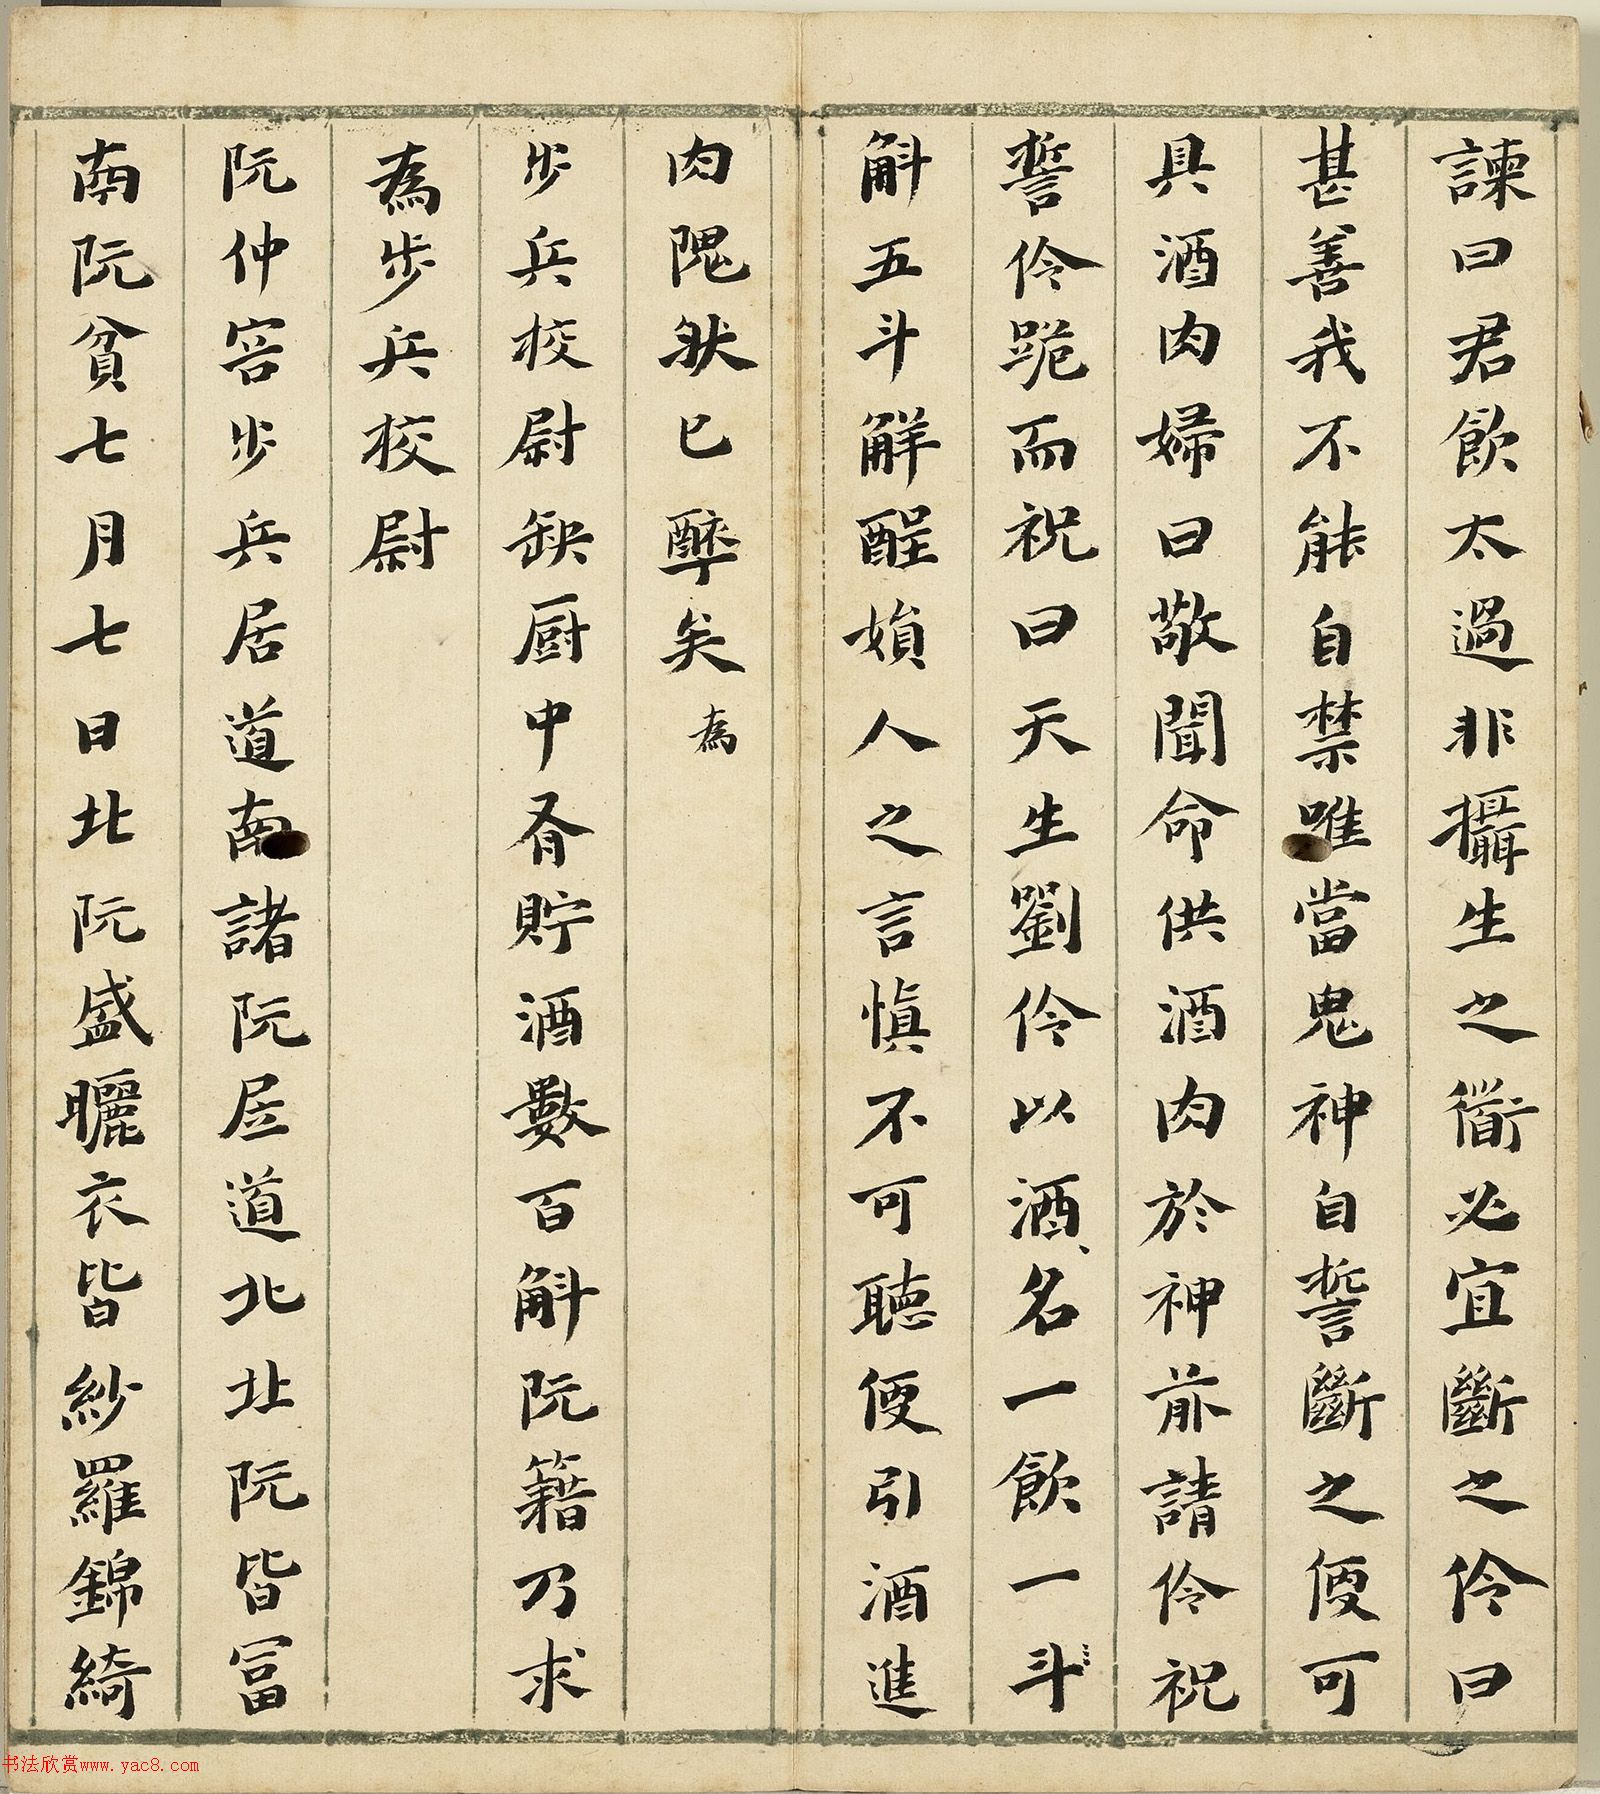 諫曰君飲太過非攝生之衜必宜斷之伶曰
甚善我不能自禁唯當鬼神自誓斷之便可
具酒肉婦曰敬聞命供酒肉於神前請伶祝
誓伶跪而祝曰天生劉伶以酒名一飲一斗
斛五斗解酲媍人之言慎不可聽便引酒進
肉隗然已醉矣為
步兵校尉缺厨中有貯酒數百斛阮籍乃求
為步兵校尉
阮仲容步兵居道南諸阮居道北北阮皆富
南阮貧七月七日北阮盛曬衣皆紗羅錦綺
书法欣赏www.yac8.com